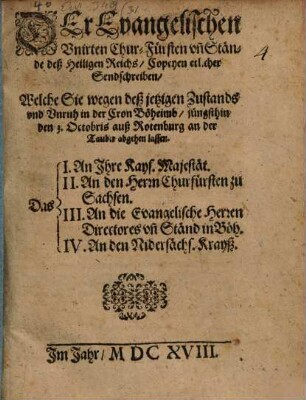 DEr Evangelischen
Vnirten Chur-Fürsten vñ Stän-
de deß Heiligen Reichs / Copeyen etlicher
Sendschreiben /
Welche Sie wegen deß jetzigen Zustands
vnd Vnruh in der Cron Böheimb / jüngsthin
den 3. Octobris auß Rotenburg an der
Tauber abgehen lassen.
Das
I. An Ihre Kays. Majestät.
II. An den Herrn Churfürsten zu
Sachsen.
III. An die Evangelische Herren
Directores vñ Ständ in Böh.
IV. An den Nidersächs. Krayß.
Im Jahr / M DC XVIII.
4